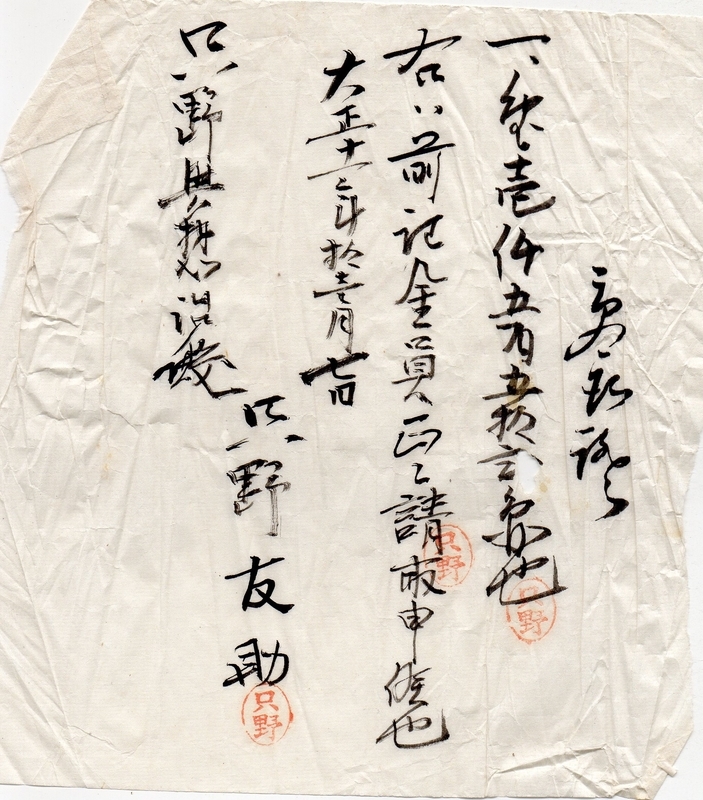 受取證
一、金壱仟五百五拾弐也
右ハ前記金員正ニ請取申候也
大正十一年拾壱月七日
只野友助
只野與治殿
只野
只野
只野